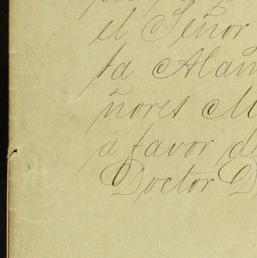 el Señor
ta Alam
ñores M
a favor de
Doctor D